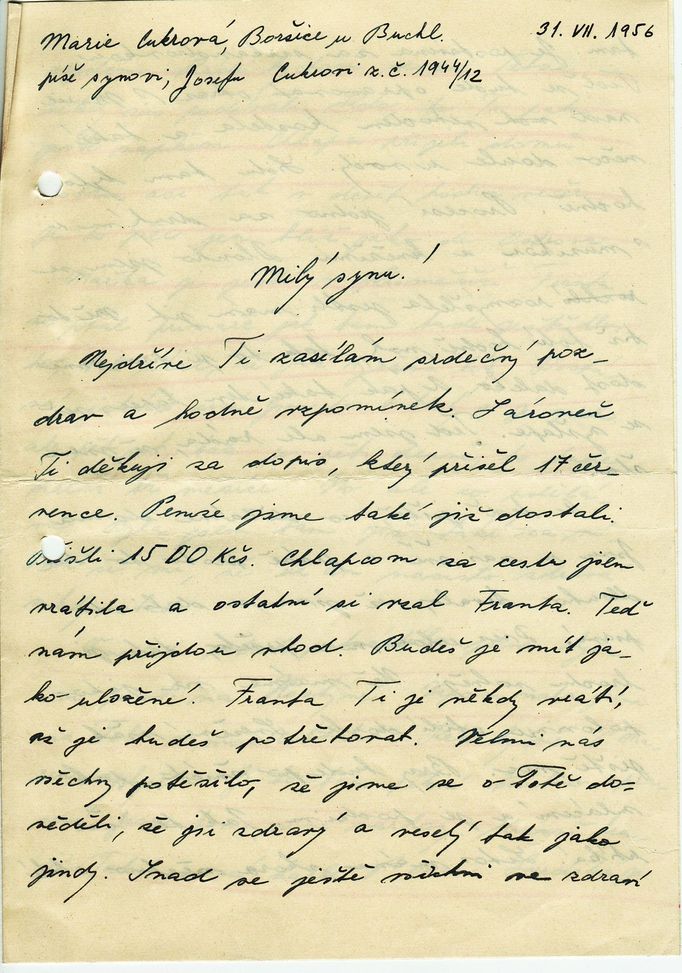 Marie Cukrová, Boršice u Buchl. 31. VII. 1956
píše synovi, Josefu Cukrovi z.č. 1944/12
Milý synu!
Nejdříve Ti zasílám srdečný poz-
drav a hodně vzpomínek. Zároveň
Ti děkuji za dopis, který přišel 17 čer-
vence. Peníze jsme také již dostali.
Přišli 1500 Kčs. Chlapcom za cestu jsem
vrátila a ostatní si vzal Franta. Teď
nám přijdou vhod. Budeš je mít ja-
ko uložené. Franta Ti je někdy vrátí,
až je budeš potřebovat. Velmi nás
všechny potěšilo, že jsme se o Tobě do-
věděli, že jsi zdravý a veselý tak jako
jindy. Snad se ještě všichni ve zdraví